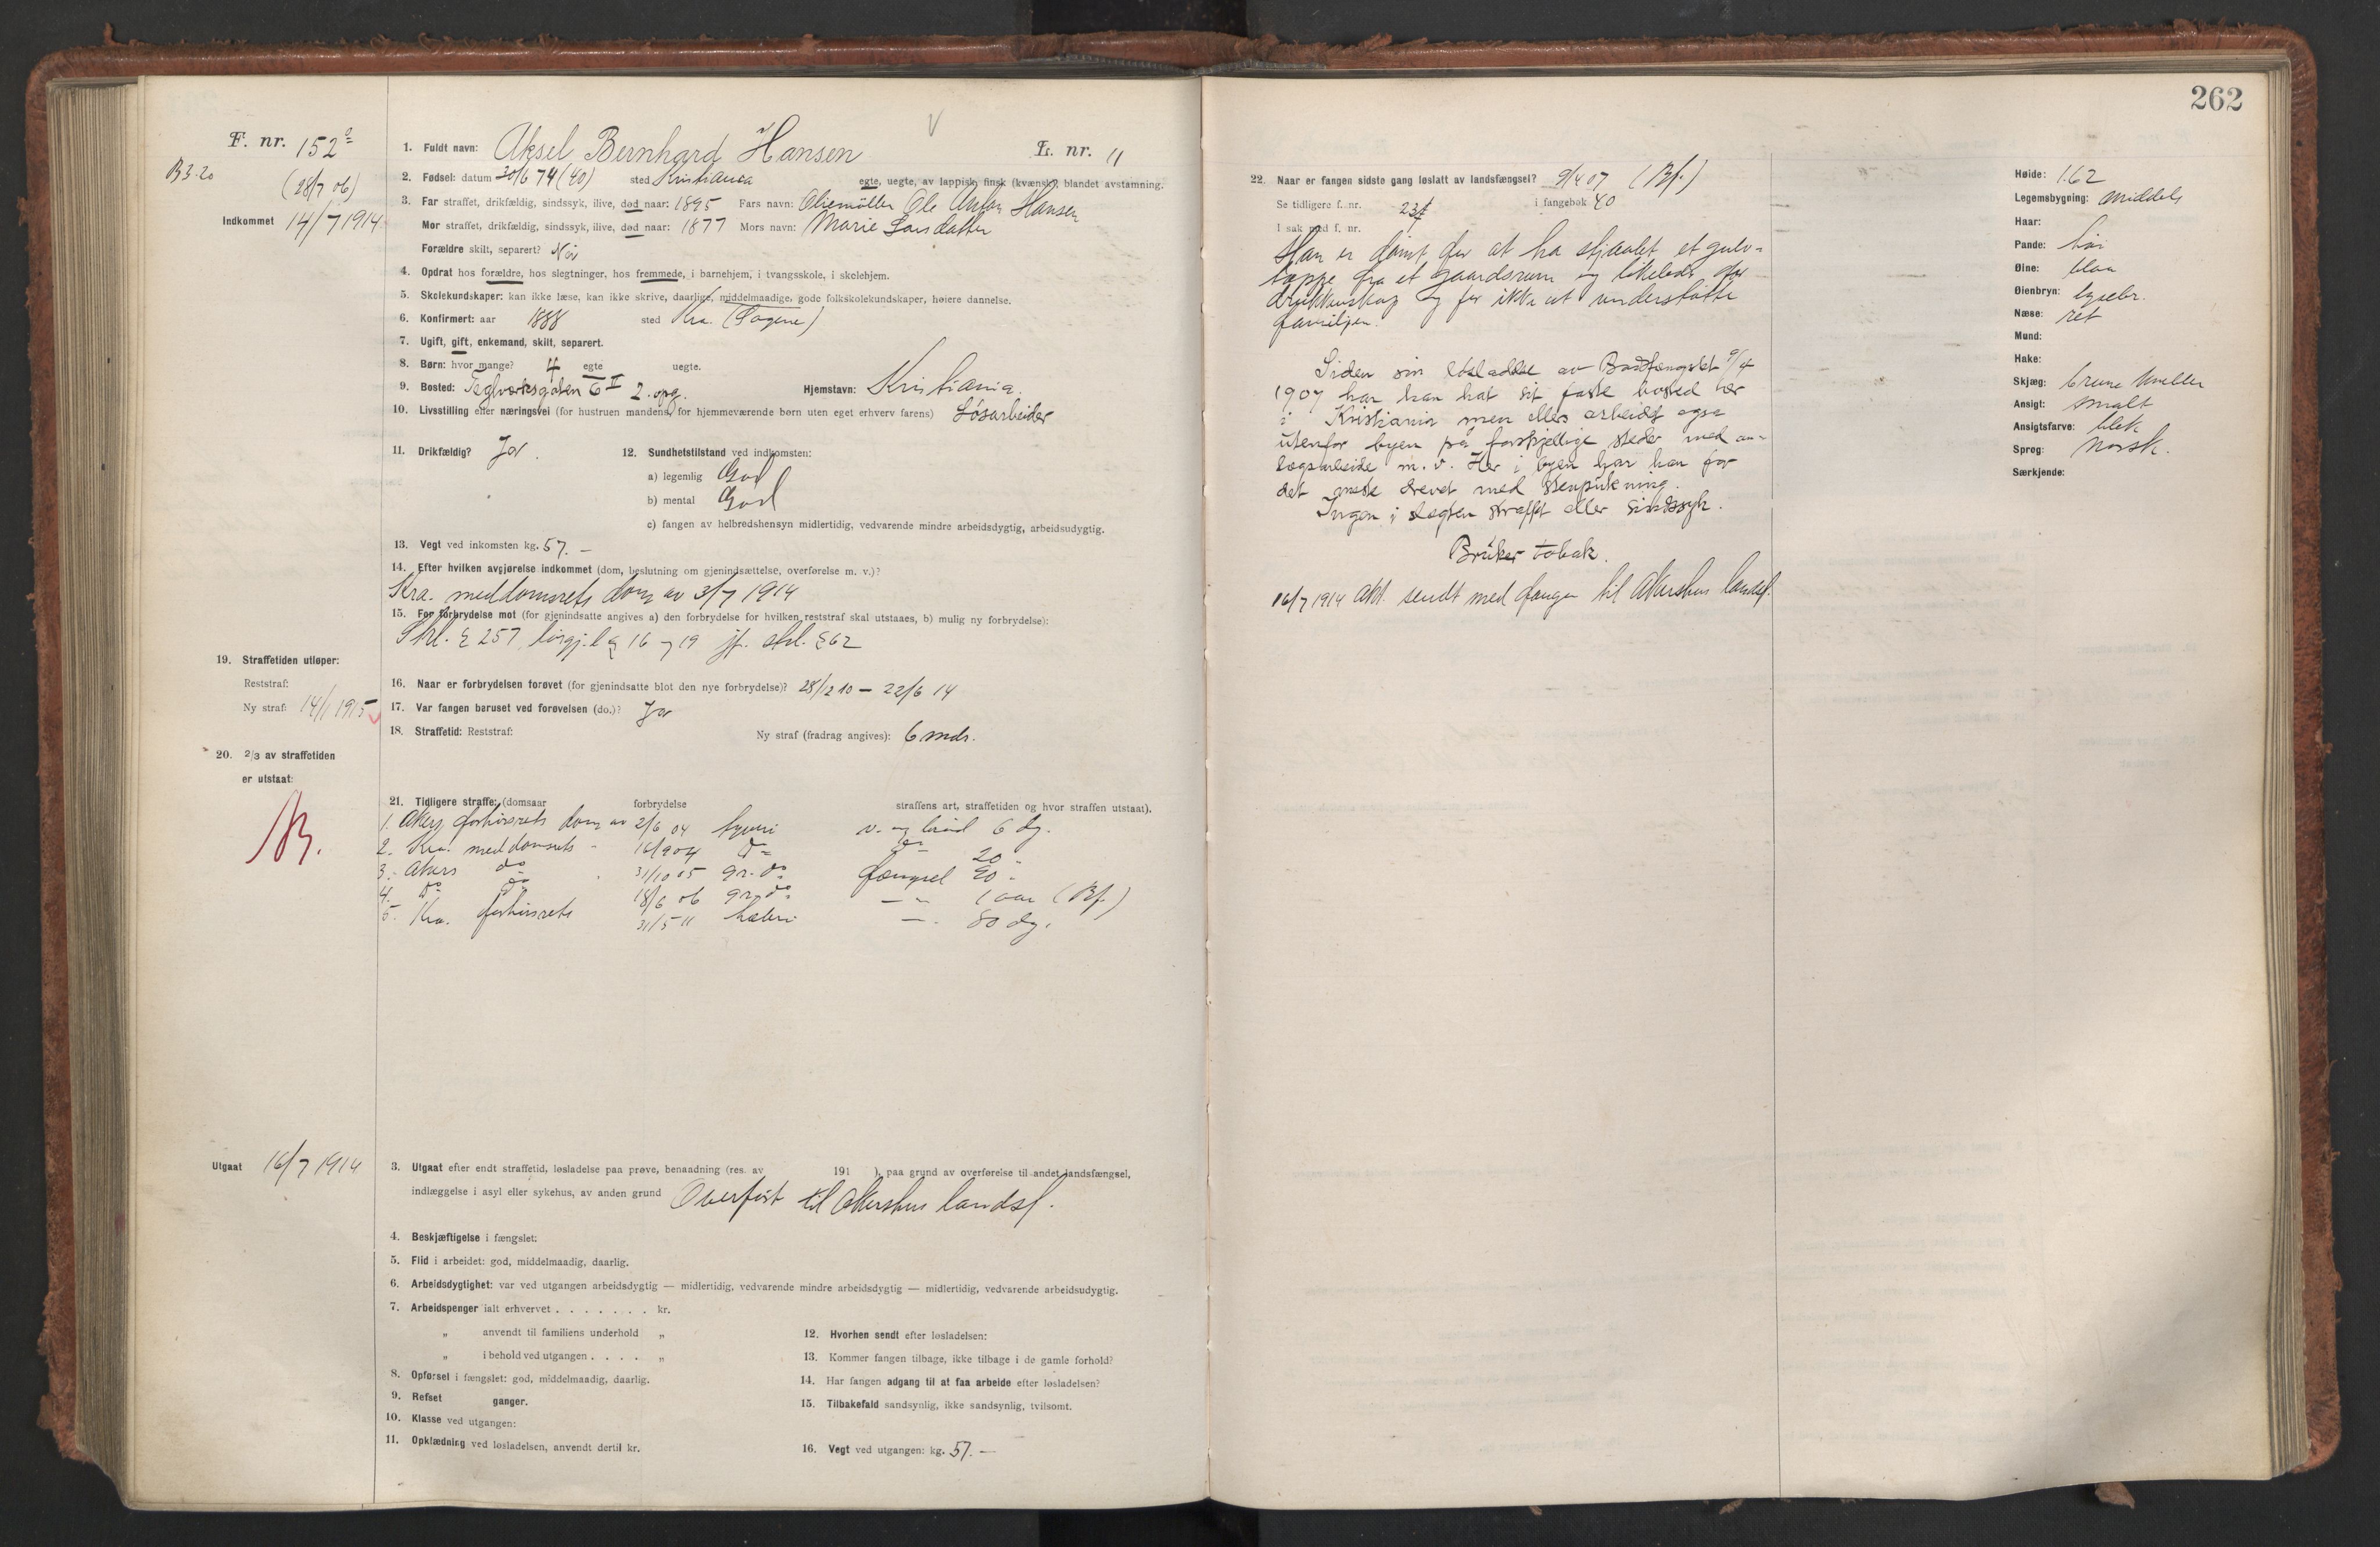 262
F. nr. 152
B 3. 20
(28/7 06)
Indkommet 14/7 1914
1. Fuldt navn: Aksel Bernhard Hansen L. nr. 11
2. Fødsel: datum 30/6 74 (40) sted Kristiania egte, uegte, av lappisk, finsk (kvænsk), blandet avstamning.
3. Far straffet, drikfældig, sindssyk, ilive, død naar: 1895 Fars navn: Oliemöller Ole Anton Hansen
Mor straffet, drikfældig, sindssyk, ilive, død naar: 1877 Mors navn: Marie Larsdatter
Forældre skilt, separert? Nei
4. Opdrat hos forældre, hos slegtninger, hos fremmede, i barnehjem, i tvangsskole, i skolehjem.
5. Skolekundskaper: kan ikke læse, kan ikke skrive, daarlige, middelmaadige, gode folkskolekundskaper, høiere dannelse.
6. Konfirmert: aar 1888 sted Kra. (Sagene)
7. Ugift, gift, enkemand, skilt, separert.
8. Børn: hvor mange? 4 egte uegte.
9. Bosted: Teglverksgaten 6 II 2. opg. Hjemstavn: Kristiania.
10. Livsstilling eller næringsvei (for hustruen mandens, for hjemmeværende børn uten eget erhverv farens) Løsarbeider
11. Drikfældig? Ja. 12. Sundhetstilstand ved indkomsten:
a) legemlig God
b) mental God
c) fangen av helbredshensyn midlertidig, vedvarende mindre arbeidsdygtig, arbeidsudygtig.
13. Vegt ved inkomsten kg. 57. —
14. Efter hvilken avgjørelse indkommet (dom, beslutning om gjenindsættelse, overførelse m. v.)?
Kra. meddomsrets dom av 3/7 1914
15. For forbrydelse mot (for gjenindsatte angives a) den forbrydelse for hvilken reststraf skal utstaaes, b) mulig ny forbrydelse):
Strl. § 257, løsgj.l § 16 og 19 jf. strl. § 62
19. Straffetiden utløper:
Reststraf:
Ny straf: 14/1 1915
16. Naar er forbrydelsen forøvet (for gjenindsatte blot den nye forbrydelse)? 28/12 10 — 22/6 14
17. Var fangen beruset ved forøvelsen (do.)? Ja
18. Straffetid: Reststraf: Ny straf (fradrag angives): 6 mdr.
20. 2/3 av straffetiden
er utstaat:
21. Tidligere straffe: (domsaar forbrydelse straffens art, straffetiden og hvor straffen utstaat).
1. Akers forhørsrets dom av 2/6 04 tyveri v. og brød 6 dg.
2. Kra. meddomsrets " 16/9 04 do do 20 "
3. Akers do " 31/10 05 gr. do fængsel 90 "
4. do do 18/6 06 gr. do — " 1 aar (Bf.)
5. Kra. forhørsrets 31/5 11 hæleri — " 80 dg.
Utgaat 16/7 1914
3. Utgaat efter endt straffetid, løsladelse paa prøve, benaadning (res. av 191 ), paa grund av overførelse til andet landsfængsel,
indlæggelse i asyl eller sykehus, av anden grund Overført til Akershus landsf.
4. Beskjæftigelse i fængslet:
5. Flid i arbeidet: god, middelmaadig, daarlig.
6. Arbeidsdygtighet: var ved utgangen arbeidsdygtig — midlertidig, vedvarende mindre arbeidsdygtig — midlertidig, vedvarende arbeidsudygtig.
7. Arbeidspenger ialt erhvervet . . . . . . . kr.
" anvendt til familiens underhold "
" i behold ved utgangen . . . . "
8. Opførsel i fængslet: god, middelmaadig, daarlig.
9. Refset ganger.
10. Klasse ved utgangen:
11. Opklædning ved løsladelsen, anvendt dertil kr.
12. Hvorhen sendt efter løsladelsen:
13. Kommer fangen tilbage, ikke tilbage i de gamle forhold?
14. Har fangen adgang til at faa arbeide efter løsladelsen?
15. Tilbakefald sandsynlig, ikke sandsynlig, tvilsomt.
16. Vegt ved utgangen: kg. 57. —
22. Naar er fangen sidste gang løslatt av landsfængsel? 9/4 07 (Bf.)
Se tidligere f. nr. i fangebok 40
I sak med f. nr.
Han er dømt for at ha stjaalet et gulv-
teppe fra et gaardsrum og likeledes for
drukkenskap og for ikke at understøtte
familjen.
Siden sin løsladelse av Bodsfængslet 9/4
1907 har han hat sit faste bosted her
i Kristiania men ellers arbeidet ogsa
utenfor byen på forskjellige steder med an-
lægsarbeide m. v. Her i byen har han for
det meste drevet med stenpukning.
Ingen i slegten straffet eller sindssyk.
Bruker tobak.
16/7 1914 Akt. sendt med fangen til Akershus landsf.
Høide: 1.62
Legemsbygning: middels
Haar:
Pande: høi
Øine: blaa
Øienbryn: lysebr.
Næse: ret
Mund:
Hake:
Skjæg: brune knebler
Ansigt: smalt
Ansigtsfarve: blek
Sprog: norsk.
Særkjende: